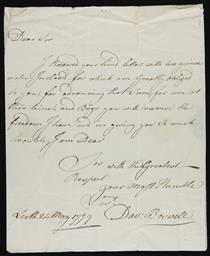 Dear Sir
I Received your kind letter with two guineas
order Inclosed for which am Greatly obliged
to you, for advancing that Sum for me at
this time, and Begs you will excuse the
freedom I have and am giving you so much
trouble, I am Dear
Sir with the Greatest
Respect
your Most Humble
Ser
Leith 24 May 1779 Davd Boswell